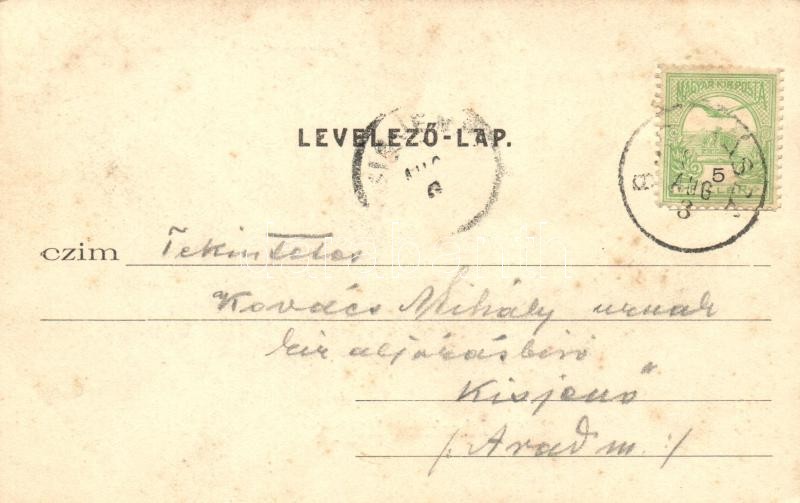 MAGYAR KIR. POSTA
LEVELEZŐ-LAP.
5
AUG
8
AUG
czim Tekintetes
Kovács Mihály urnak
kir aljárásbiró
Kisjenő
/: Arad m. :/